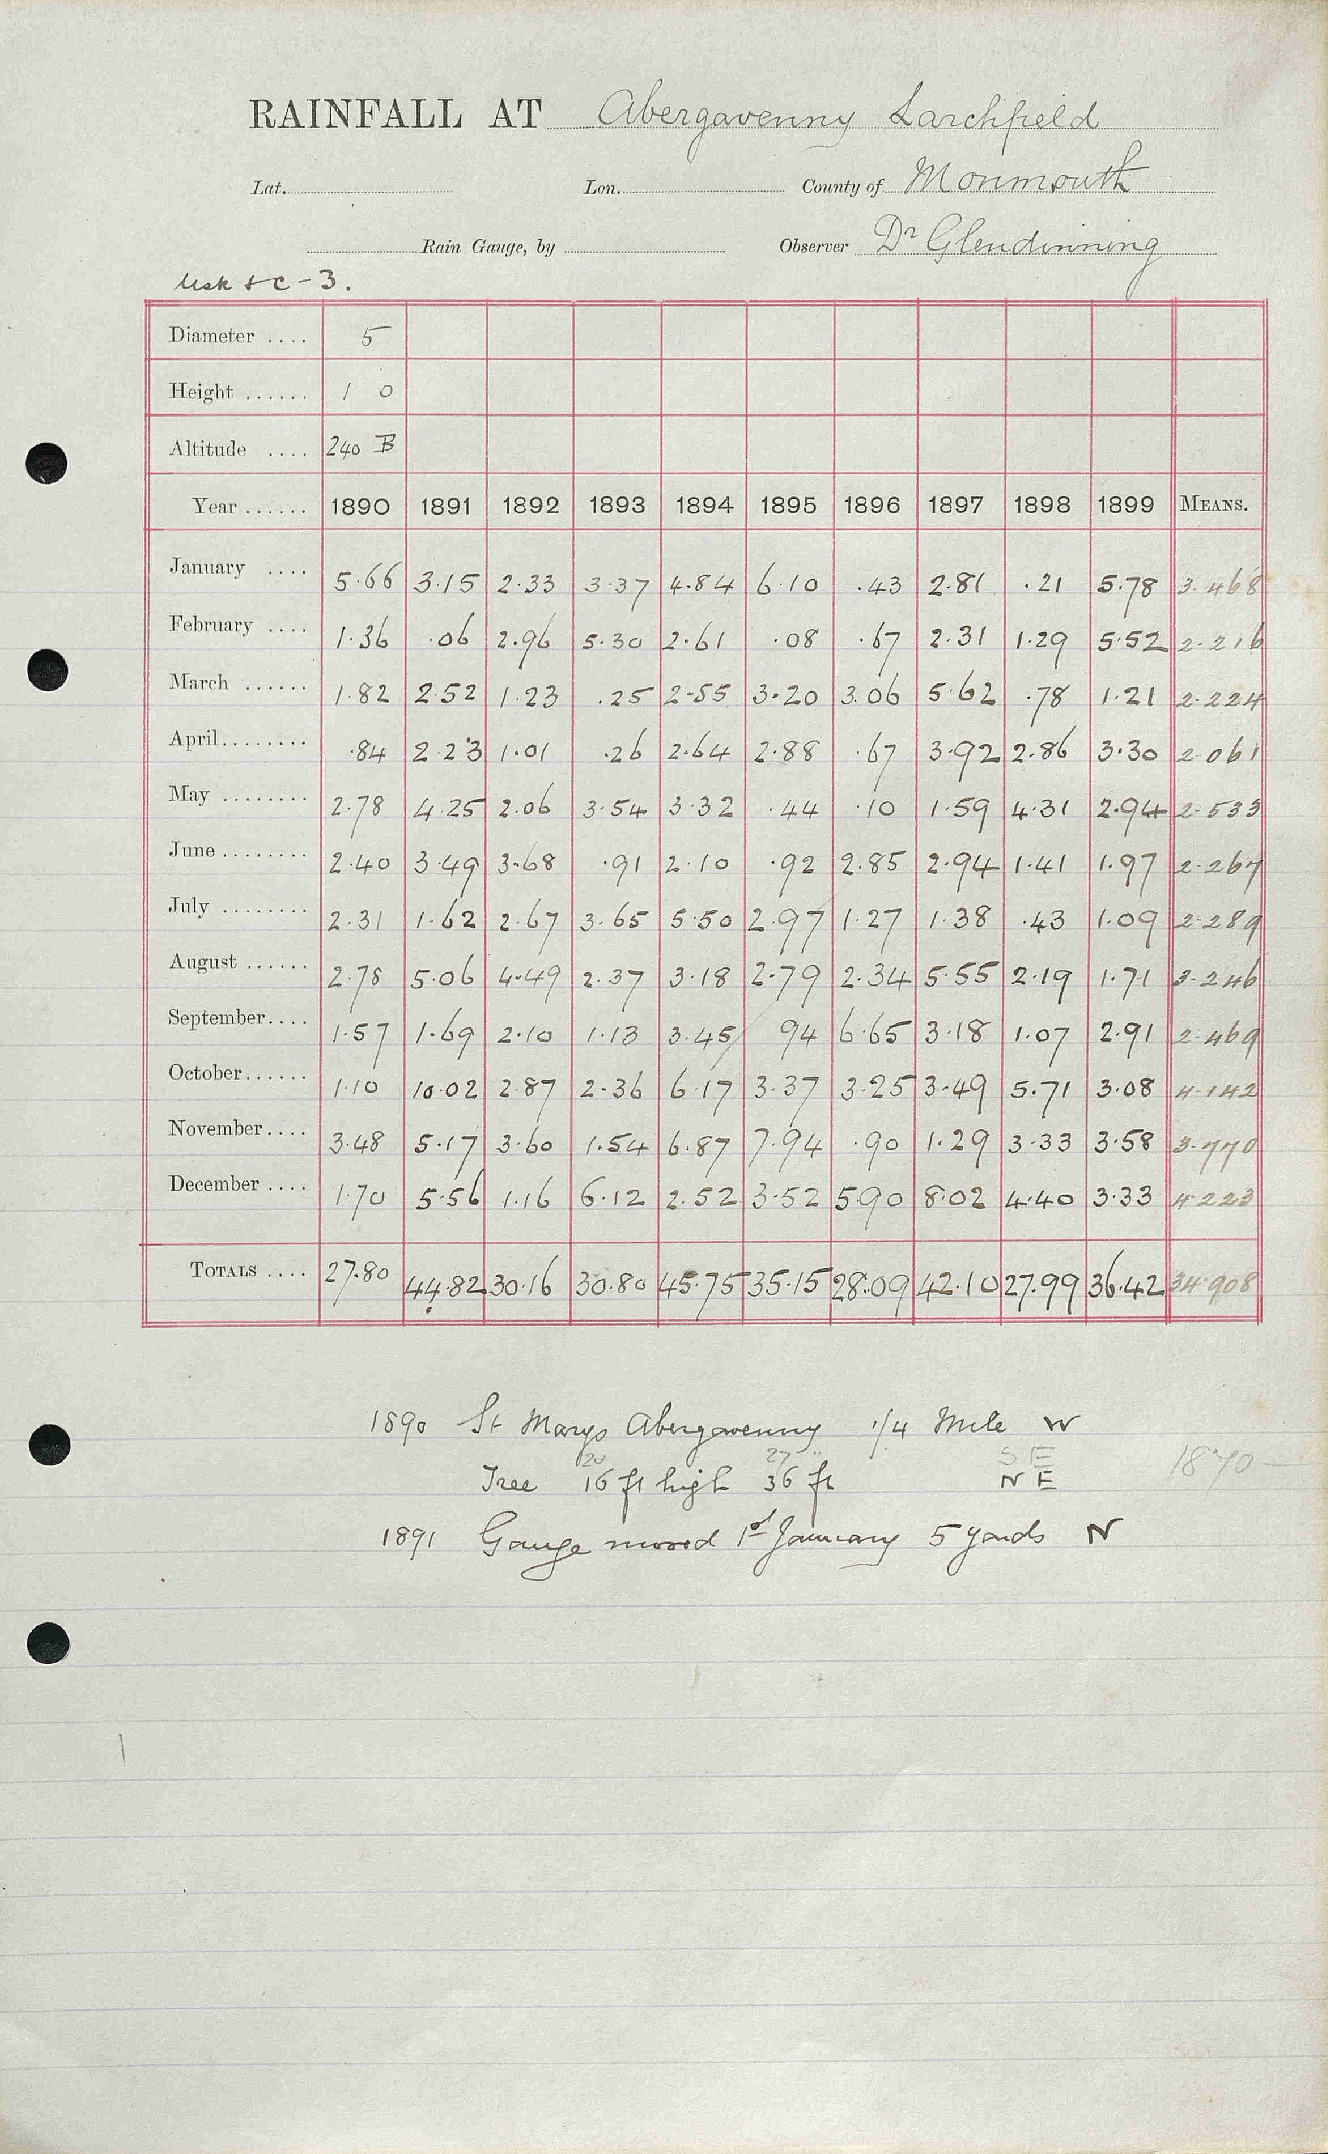 RAINFALL AT Abergavenny Larchfield
Lat. Lon. County of Monmouth
Rain Gauge, by Observer Dr Glendinning
Usk & C - 3.
Diameter .... 5
Height ...... 1 0
Altitude .... 240 B
Year ...... 1890 1891 1892 1893 1894 1895 1896 1897 1898 1899 MEANS.
January .... 5.66 3.15 2.33 3.37 4.84 6.10 .43 2.81 .21 5.78 3.468
February .... 1.36 .06 2.96 5.30 2.61 .08 .67 2.31 1.29 5.52 2.216
March ...... 1.82 2.52 1.23 .25 2.55 3.20 3.06 5.62 .78 1.21 2.224
April........ .84 2.23 1.01 .26 2.64 2.88 .67 3.92 2.86 3.30 2.061
May ........ 2.78 4.25 2.06 3.54 3.32 .44 .10 1.59 4.31 2.94 2.533
June ........ 2.40 3.49 3.68 .91 2.10 .92 2.85 2.94 1.41 1.97 2.267
July ........ 2.31 1.62 2.67 3.65 5.50 2.97 1.27 1.38 .43 1.09 2.289
August ...... 2.78 5.06 4.49 2.37 3.18 2.79 2.34 5.55 2.19 1.71 3.246
September.... 1.57 1.69 2.10 1.13 3.45 94 6.65 3.18 1.07 2.91 2.469
October...... 1.10 10.02 2.87 2.36 6.17 3.37 3.25 3.49 5.71 3.08 4.142
November.... 3.48 5.17 3.60 1.54 6.87 7.94 .90 1.29 3.33 3.58 3.770
December .... 1.70 5.56 1.16 6.12 2.52 3.52 5.90 8.02 4.40 3.33 4.223
TOTALS .... 27.80 44.82 30.16 30.80 45.75 35.15 28.09 42.10 27.99 36.42 34.908
1890 St Marys Abergavenny 1/4 Mile W
20 27 SE
Tree 16 ft high 36 ft NE 1870 -
1891 Gauge moved 1st January 5 yards N